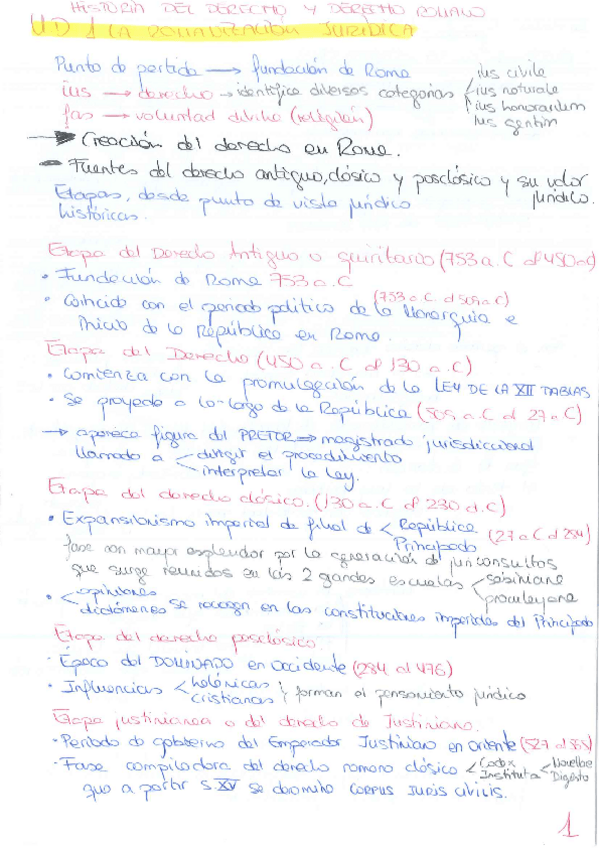 HISTORIA DEL DERECHO Y DERECHO ROMANO
UD 1 LA ROMANIZACIÓN JURÍDICA
Punto de partida → fundación de Roma
ius → derecho → identifica diversas categorías
ius civile
ius naturale
ius honorarium
ius gentium
fas → voluntad divina (religión)
→ Creación del derecho en Roma.
- Fuentes del derecho antiguo, clásico y posclásico y su valor jurídico.
Etapas, desde punto de vista jurídico
históricas.
Etapa del Derecho Antiguo o quiritario (753 a.C al 450 a.C)
• Fundación de Roma 753 a.C
• Coincide con el periodo político de la Monarquía e (753 a.C. al 509 a.C)
Inicio de la República en Roma.
Etapa del Derecho (450 a.C al 130 a.C)
• Comienza con la promulgación de la LEY DE LA XII TABLAS
• Se proyecta a lo largo de la República (509 a.C al 27 a.C)
→ aparece figura del PRETOR → magistrado jurisdiccional
llamado a < dirigir el procedimiento
interpretar la ley.
Etapa del derecho clásico. (130 a.C al 230 d.C)
• Expansionismo imperial de final de < República
Principado (27 a.C al 284)
fase con mayor esplendor por la generación de jurisconsultos
que surge reunidos en las 2 grandes escuelas < sabiniana
proculeyana
• < opiniones
dictámenes se recogen en las constituciones imperiales del Principado
Etapa del derecho posclásico.
• Época del DOMINADO en occidente (284 al 476)
• Influencias < helénicas
cristianas } forman el pensamiento jurídico
Etapa justinianea o del derecho de Justiniano.
• Período de gobierno del Emperador Justiniano en oriente (527 al 565)
• Fase compiladora del derecho romano clásico < Codex
Instituta < Novellae
Digesto
que a partir S.XV se denomina CORPUS IURIS CIVILIS.
1